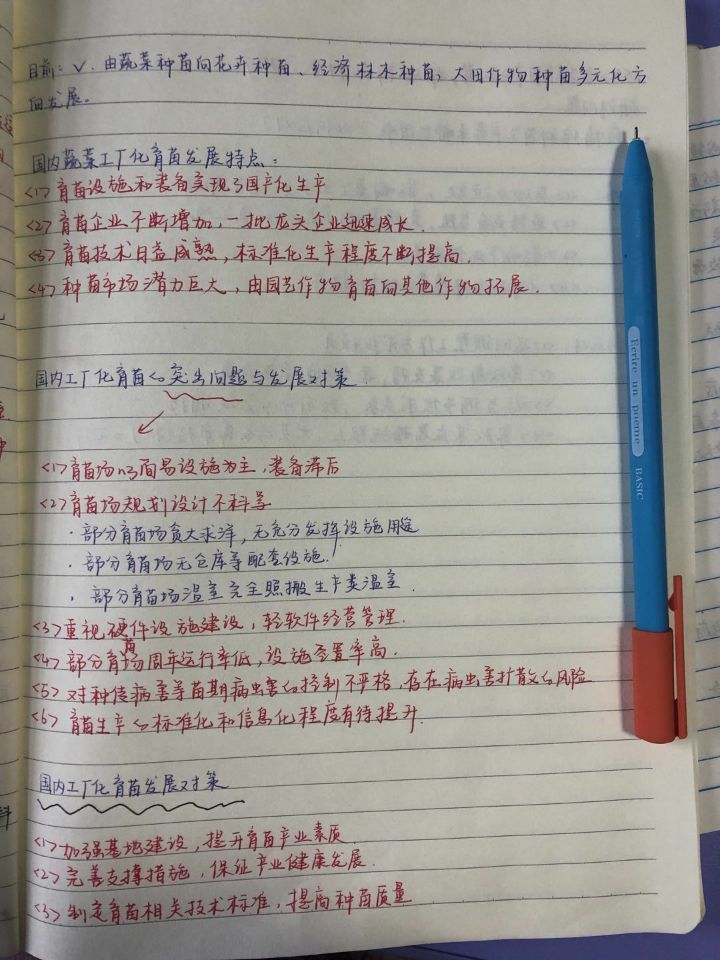 目前:✓.由蔬菜种苗向花卉种苗、经济林木种苗,大田作物种苗多元化方
向发展。
国内蔬菜工厂化育苗发展特点:
<1>育苗设施和装备实现了国产化生产
<2>育苗企业不断增加,一批龙头企业迅速成长.
<3>育苗技术日益成熟,标准化生产程度不断提高.
<4>种苗市场潜力巨大,由园艺作物育苗向其他作物拓展.
国内工厂化育苗的突出问题与发展对策
<1>育苗场以简易设施为主,装备滞后
<2>育苗场规划设计不科学
·部分育苗场贪大求洋,无充分发挥设施用途
·部分育苗场无仓库等配套设施.
·部分育苗场温室完全照搬生产类温室.
<3>重视硬件设施建设,轻软件经营管理.
<4>部分育苗场周年运行率低,设施空置率高.
<5>对种传病害等苗期病虫害的控制不严格,存在病虫害扩散的风险
<6>育苗生产的标准化和信息化程度有待提升.
国内工厂化育苗发展对策
<1>加强基地建设,提升育苗产业素质
<2>完善支撑措施,保证产业健康发展.
<3>制定育苗相关技术标准,提高种苗质量
Ecrire un poeme
BASIC